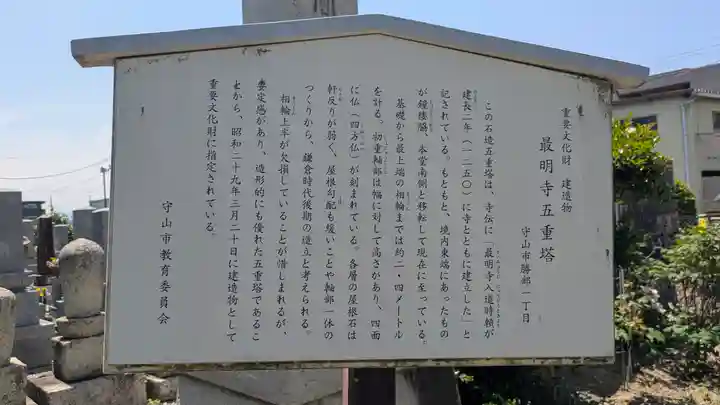 重要文化財　建造物
最明寺五重塔
守山市勝部一丁目
この石造五重塔は、寺伝に「最明寺入道時頼が
建長二年（一二五〇）に寺とともに建立した」と
記されている。もともと、境内東端にあったもの
が鐘楼脇、本堂南側と移転して現在に至っている。
基礎から最上端の相輪までは約二・四メートル
を計る。初重軸部は幅に対して高さがあり、四面
に仏（四方仏）が刻まれている。各層の屋根石は
軒反りが弱く、屋根勾配も緩いことや軸部一体の
つくりから、鎌倉時代後期の造立と考えられる。
相輪上半が欠損していることが惜しまれるが、
安定感があり、造形的にも優れた五重塔であるこ
とから、昭和二十九年三月二十日に建造物として
重要文化財に指定されている。
守山市教育委員会